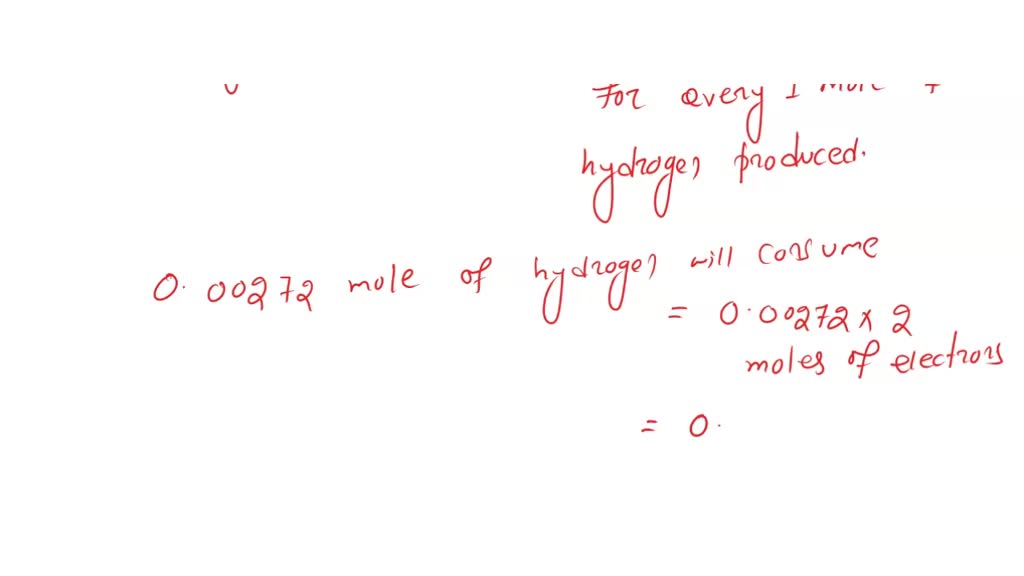 For every 1 mole
hydrogen produced.
0.00272 mole of hydrogen will consume
= 0.00272 x 2
moles of electrons
= 0.